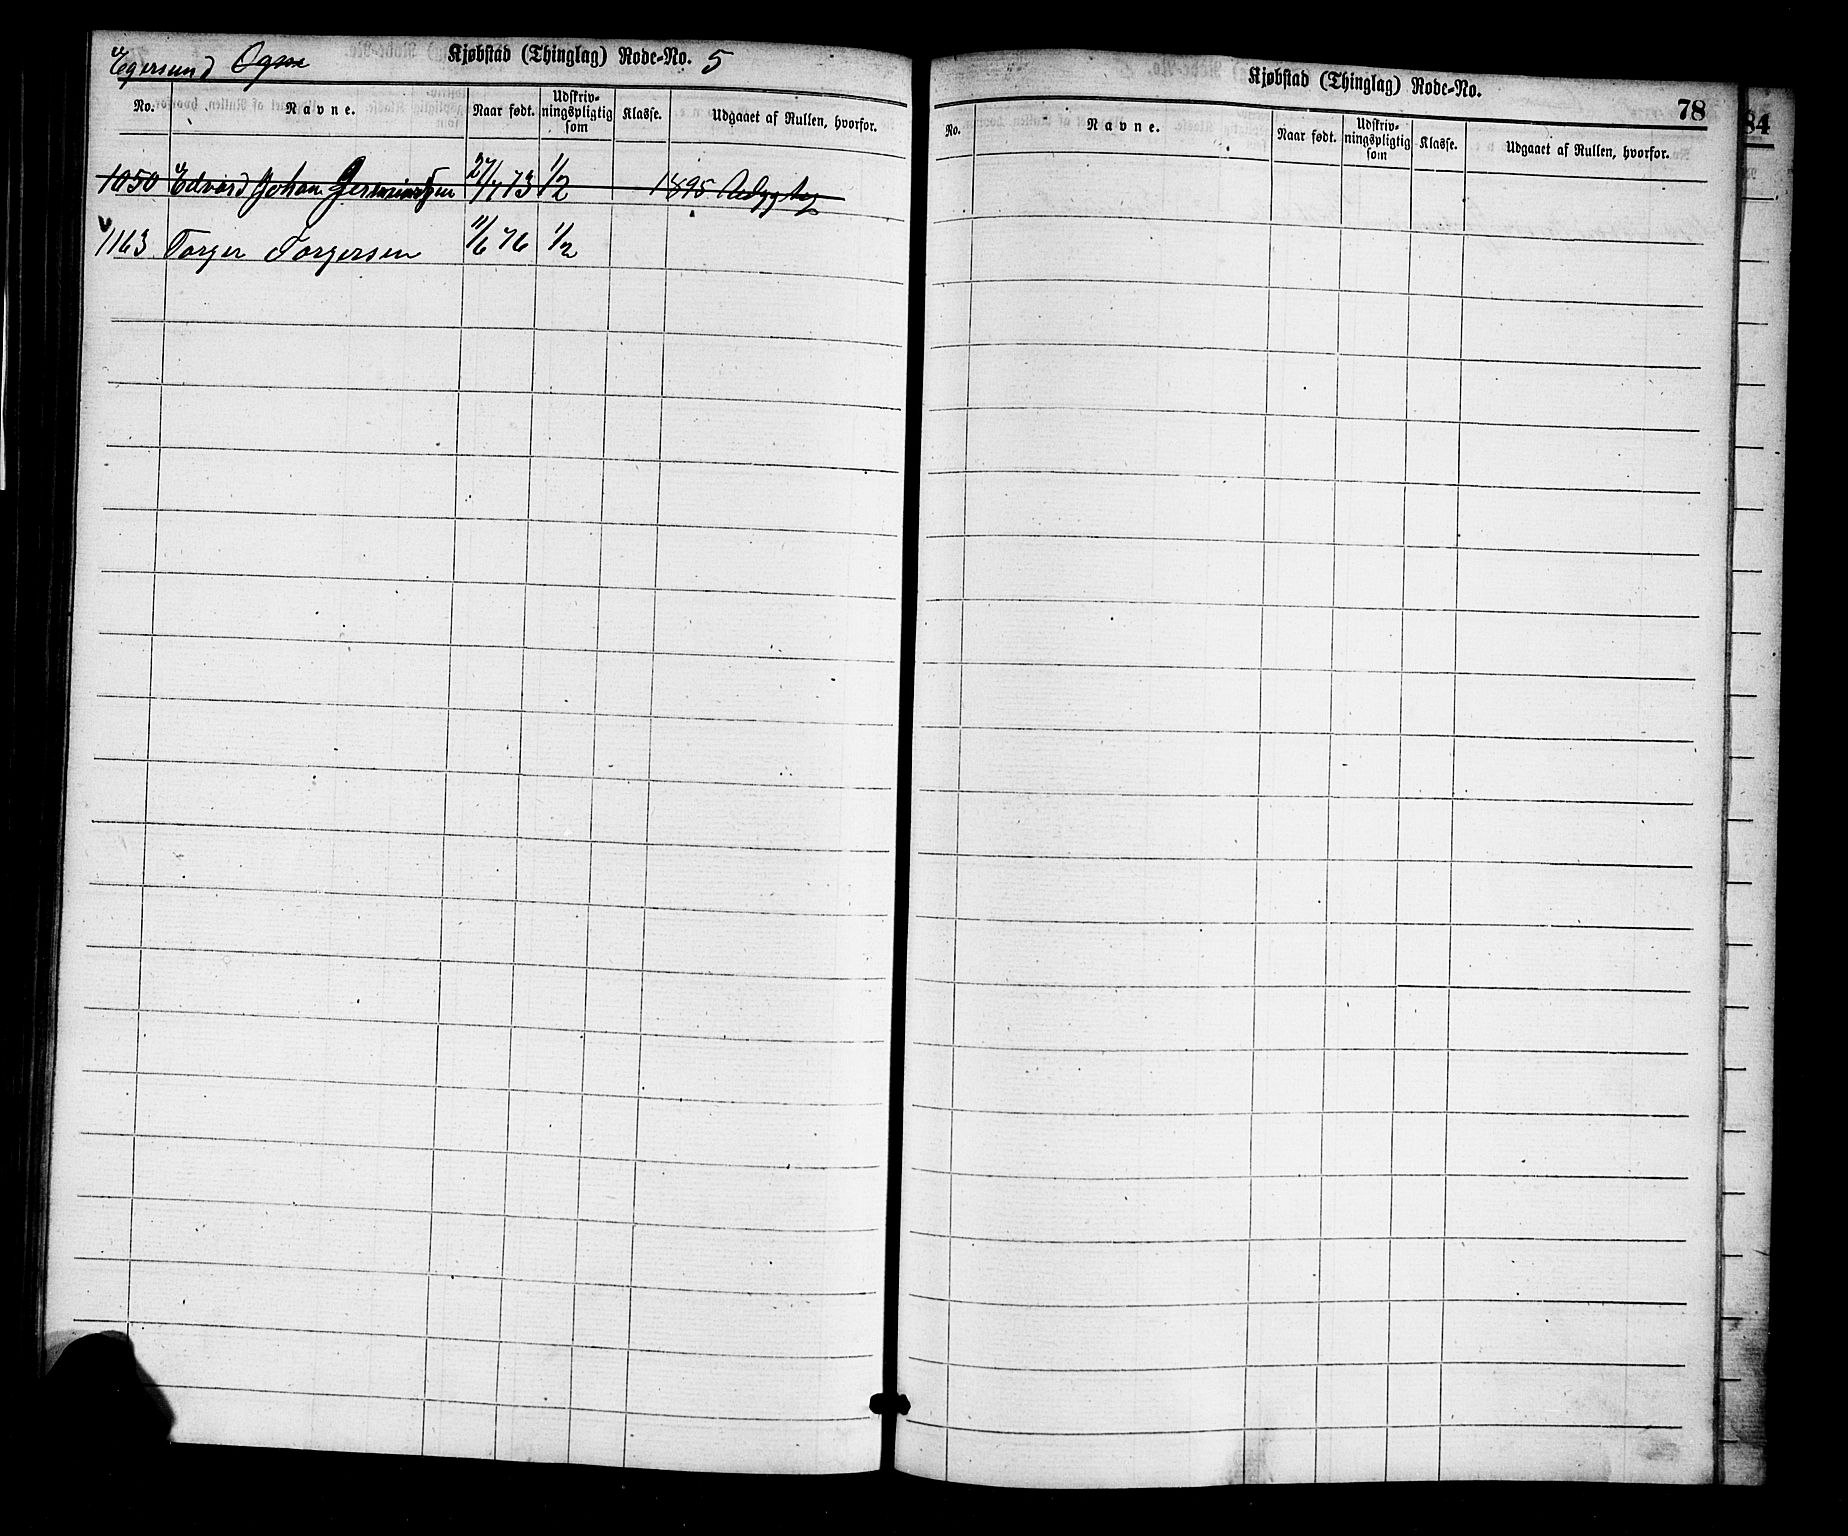 Egersund Ogne Kjøbstad (Thinglag) Rode-No. 5
No. Navne. Naar født. Udskriv-ningspligtig som Klasse. Udgaaet af Rullen, hvorfor.
1050 Edvard Johan 27/7 73 1/2 1895
1163 Torger Torgersen 11/6 76 1/2
Kjøbstad (Thinglag) Rode-No.
78
No. Navne. Naar født. Udskriv-ningspligtig som Klasse. Udgaaet af Rullen, hvorfor.
84